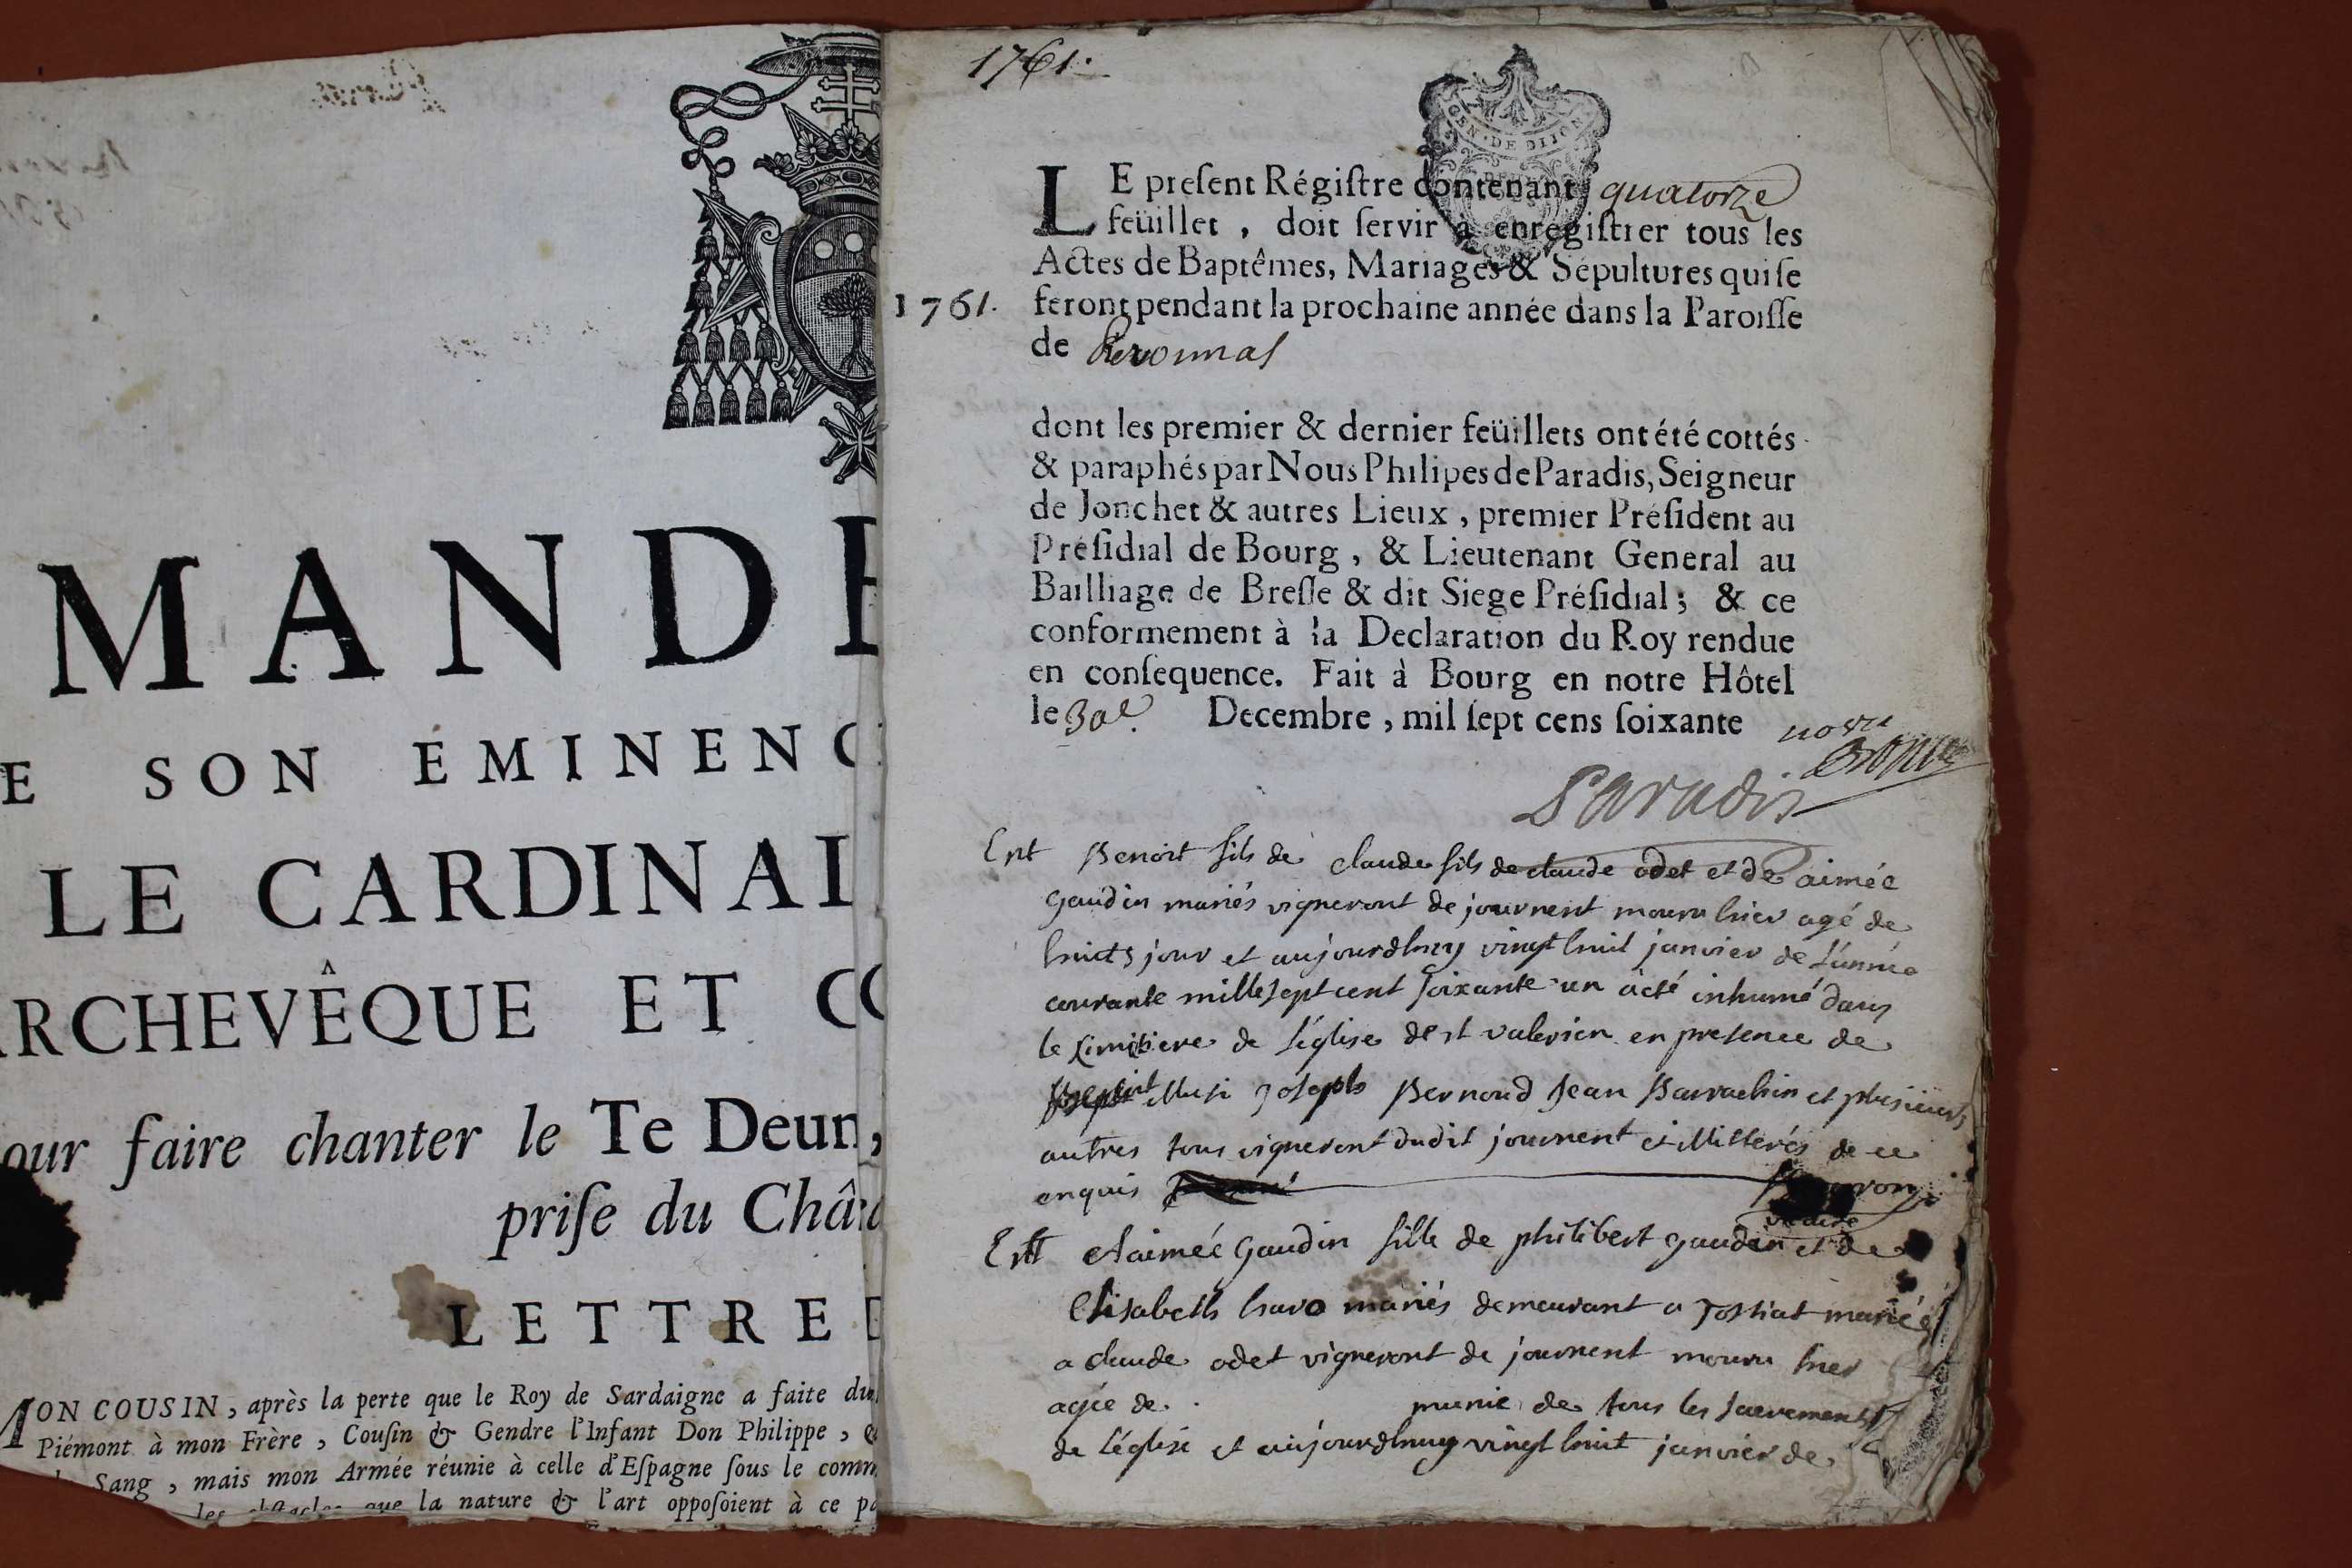 MANDE
E SON ÉMINENC
LE CARDINAL
ARCHEVÊQUE ET CO
our faire chanter le Te Deum,
priſe du Châ
LETTRE D
MON COUSIN, après la perte que le Roy de Sardaigne a faite du
Piémont à mon Frère, Couſin & Gendre l'Infant Don Philippe, &
Sang, mais mon Armée réunie à celle d'Eſpagne ſous le comm
les obſtacles que la nature & l'art oppoſoient à ce pa
1761.
GEN. DE DIJON
LE preſent Régiſtre contenant quatorze
feüillet, doit ſervir à enregiſtrer tous les
Actes de Baptêmes, Mariages & Sépultures qui ſe
1761. feront pendant la prochaine année dans la Paroiſſe
de Peronnas
dont les premier & dernier feüillets ont été cottés
& paraphés par Nous Philipes de Paradis, Seigneur
de Jonchet & autres Lieux, premier Préſident au
Préſidial de Bourg, & Lieutenant General au
Bailliage de Breſſe & dit Siege Préſidial; & ce
conformement à la Declaration du Roy rendue
en conſequence. Fait à Bourg en notre Hôtel
le 30e. Decembre, mil ſept cens ſoixante
Paradis
Ent Benoit fils de claude fils de claude odet et de aimée
gaudin mariés vigneront de journent mouru hier agé de
huits jour et aujourdhuy vingt huit janvier de l'année
courante mille sept cent soixante un a été inhumé dans
le simitiere de l'église de st valerien en presence de
Joseph Bernoud Jean Barrachin et plusieurs
autres tous vigneront dudit journent et illiterés de ce
enquis
Ent Aaimée Gaudin fille de philibert gaudin et de
Elisabeth mariés demeurant a Tossiat mariée
a claude odet vigneront de journent mouru hier
agée de. munie de tous les sacrements
de l'église et aujourdhuy vingt huit janvier de